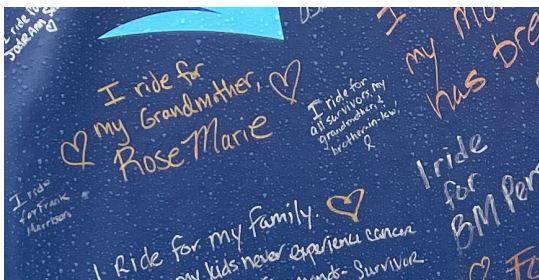 I ride for
my Grandmother,
Rose Marie
I ride for
all survivors, my
grandmother, &
brother-in-law,
I
my Mo
has bre
I ride
for Frank
Harrison
I ride
for
BM Per
I Ride for my Family.
my kids never experience cancer
Survivor